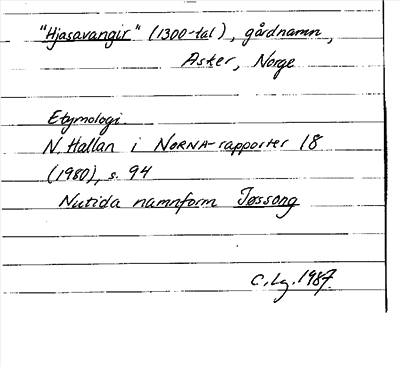 "Hjasavangir" (1300-tal), gårdnamn,
Asker, Norge
Etymologi.
N. Hallan i NORNA-rapporter 18
(1980), s. 94
Nutida namnform Jøssong
C. Lg. 1987.